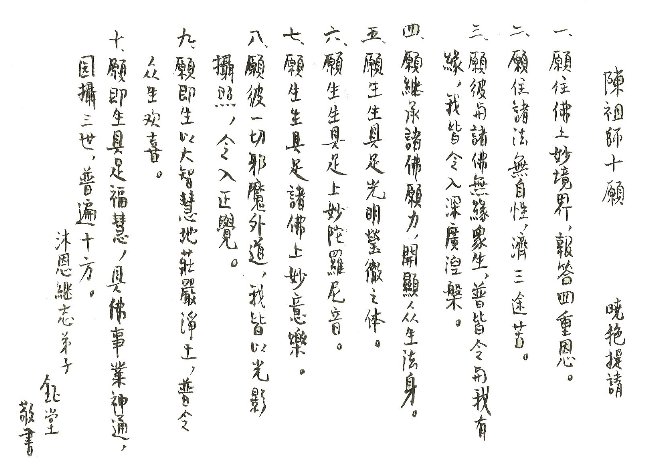 陳祖師十願 曉艳提請
一、願住佛上妙境界，報答四重恩。
二、願住諸法無自性，濟三途苦。
三、願彼与諸佛無緣衆生，普皆令与我有
緣，我皆令入深廣涅槃。
四、願継承諸佛願力，開顯众生法身。
五、願生生具足光明瑩徹之体。
六、願生生具足上妙陀羅尼音。
七、願生生具足諸佛上妙意樂。
八、願彼一切邪魔外道，我皆以光影
攝照，令入正覺。
九、願即生以大智慧地莊嚴淨土，普令
众生欢喜。
十、願即生具足福慧，具佛事業神通，
因攝三世，普遍十方。
沐恩継志弟子
鈺堂
敬書